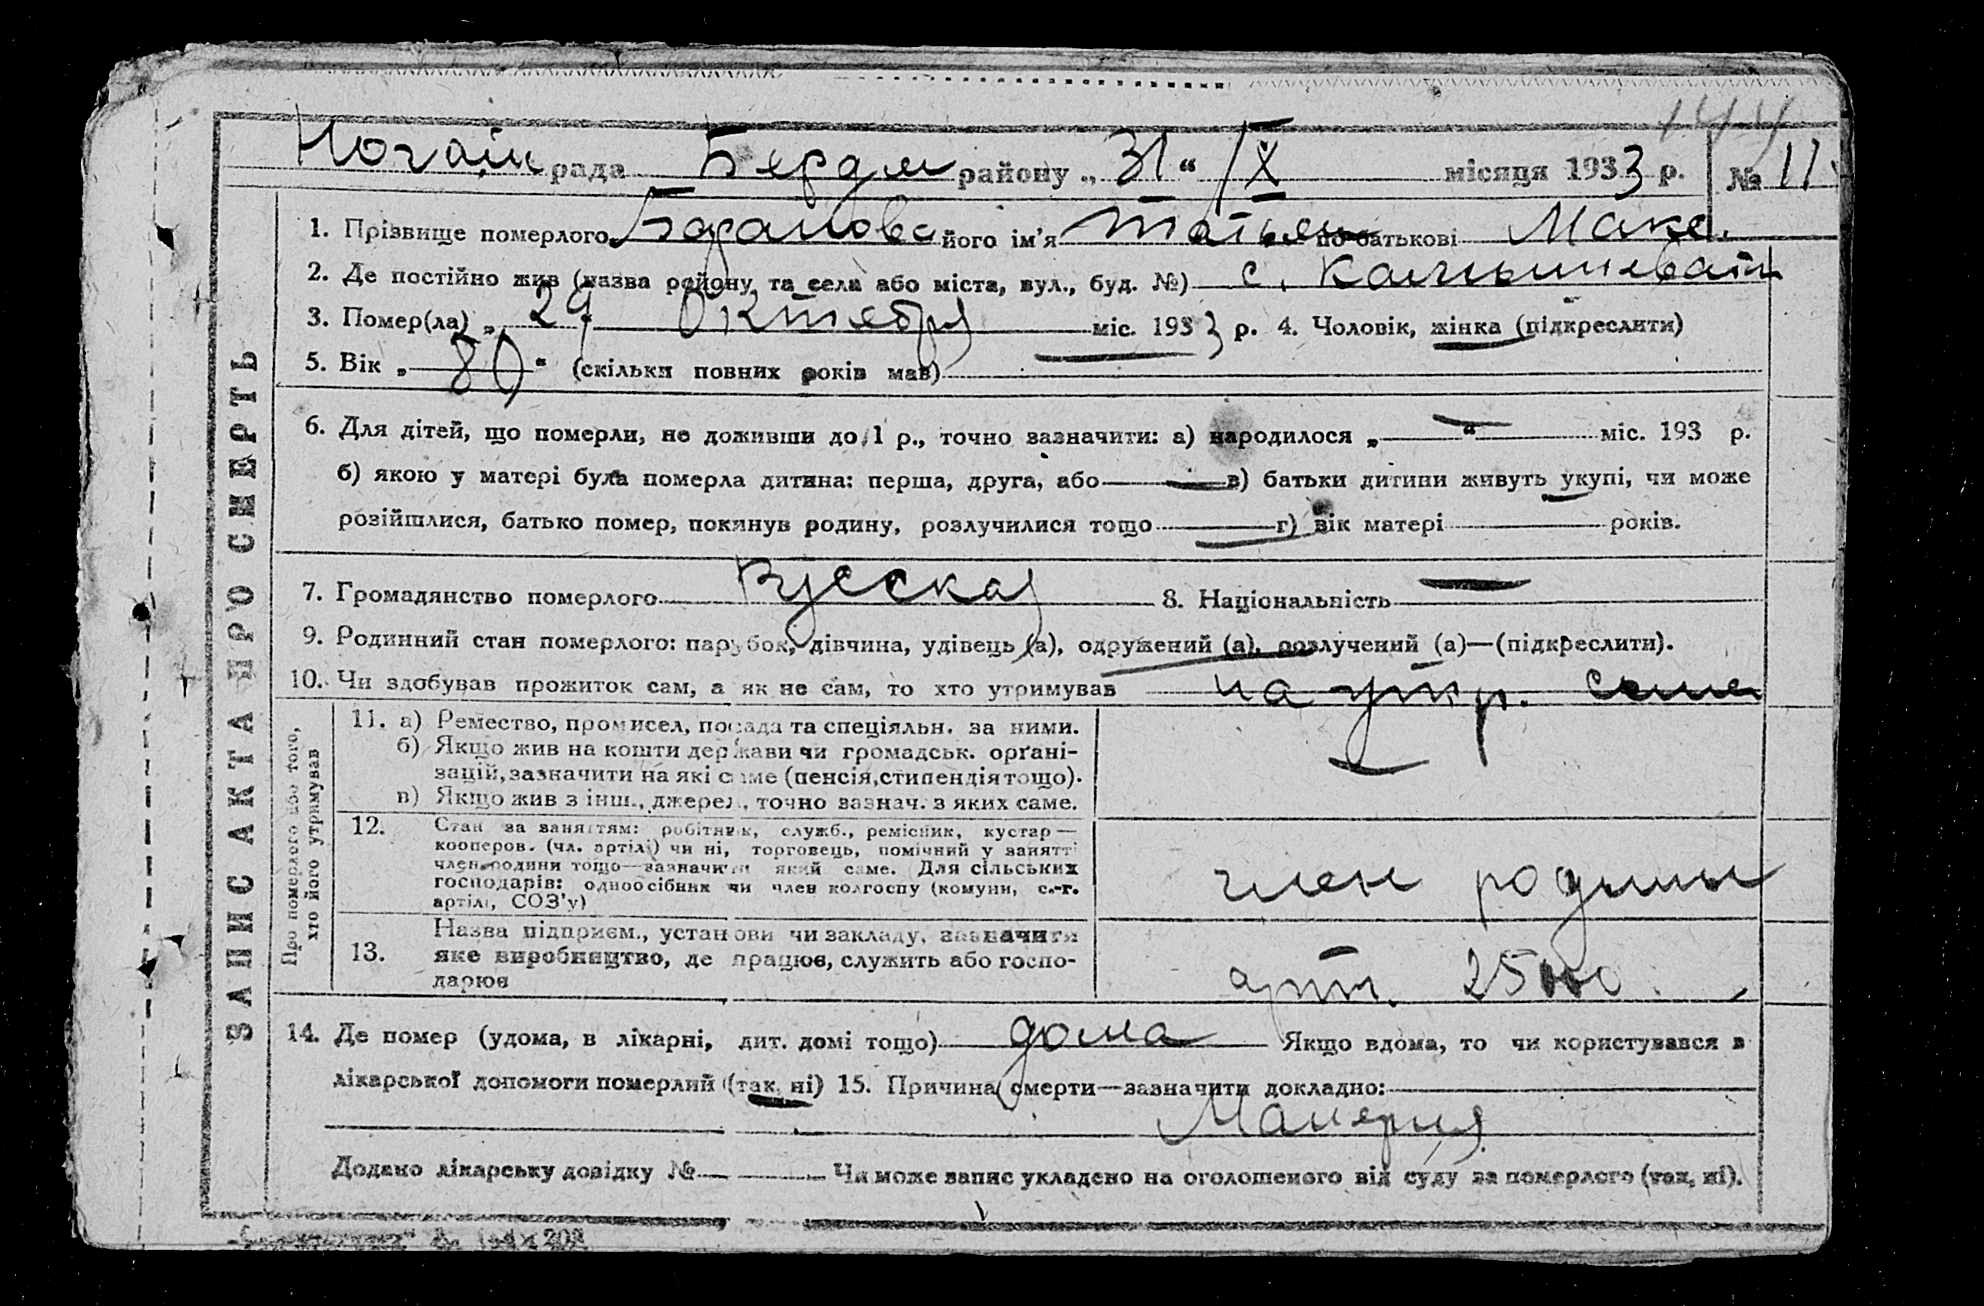 144
Ногайс рада Бердян району „ 31 “ /X місяця 1933 р. № 11
1. Прізвище померлого Баранова його ім'я Татьян по батькові Макс.
2. Де постійно жив (назва району та села або міста, вул., буд. №) с.
3. Помер(ла) „ 29 “ Октября міс. 1933 р. 4. Чоловік, жінка (підкреслити)
5. Вік „ 80 “ (скільки повних років мав)
6. Для дітей, що померли, не доживши до 1 р., точно зазначити: а) народилося „ — “ міс. 193 р.
б) якою у матері була померла дитина: перша, друга, або — в) батьки дитини живуть укупі, чи може
розійшлися, батько помер, покинув родину, розлучилися тощо — г) вік матері років.
7. Громадянство померлого Русская 8. Національність —
9. Родинний стан померлого: парубок, дівчина, удівець (а), одружений (а), розлучений (а)—(підкреслити).
10. Чи здобував прожиток сам, а як не сам, то хто утримував на утр. семьи
ЗАПИС АКТА ПРО СМЕРТЬ
Про померлого або того, хто його утримував
11. а) Ремество, промисел, посада та спеціяльн. за ними.
б) Якщо жив на кошти держави чи громадськ. орґані-
зацій, зазначити на які саме (пенсія, стипендія тощо).
в) Якщо жив з інш., джерел, точно зазнач. з яких саме.
12. Стан за заняттям: робітник, служб., ремісник, кустар —
кооперов. (чл. артілі) чи ні, торговець, помічний у занятті
член родини тощо—зазначити який саме. Для сільських
господарів: одноосібник чи член колгоспу (комуни, с.-г.
артілі, СОЗ'у)
член родины
13. Назва підприєм., установи чи закладу, зазначити
яке виробництво, де працює, служить або госпо-
дарює
арт.
14. Де помер (удома, в лікарні, дит. домі тощо) дома Якщо вдома, то чи користувався в
лікарської допомоги померлий (так, ні) 15. Причина смерти—зазначити докладно:
Малерия
Додано лікарську довідку № — Чи може запис укладено на оголошеного від суду за померлого (так, ні).